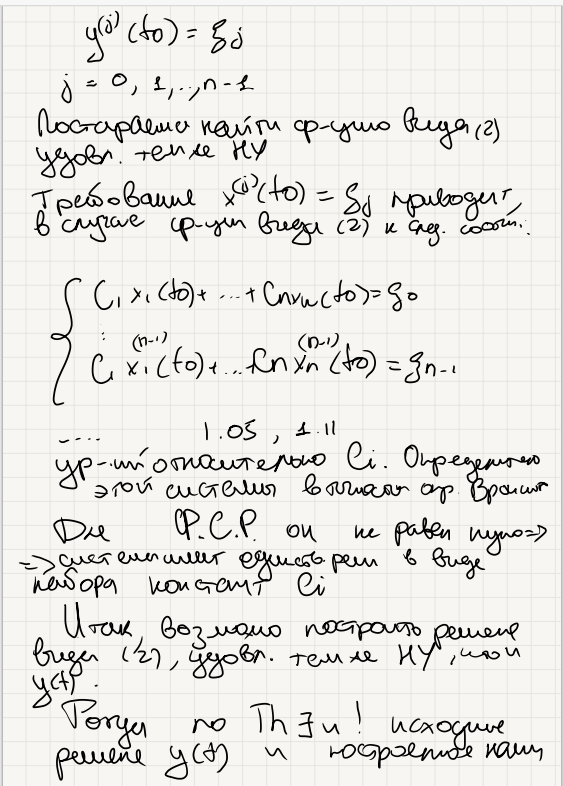 y^(j)(t0) = ξj
j = 0, 1,..,n-1
Постараемся найти ф-цию вида (2)
удовл. тем же НУ
Требование x^(j)(t0) = ξj приводит,
в случае ф-ции вида (2) к след. соотн.:
{ C1 x1(t0)+ ...+ Cnxn(t0)=ξ0
⋮
C1 x1^(n-1)(t0)+...+Cn xn^(n-1)(t0) = ξn-1
.... 1.05 , 1.11
ур-ний относительно Ci. Определитель
этой системы опр. Вронск
Для Ф.С.Р. он не равен нулю=>
=> система имеет единств реш в виде
набора констант Ci
Итак, возможно построить решение
вида (2), удовл. тем же НУ, что и
y(t).
Тогда по Th ∃ и ! исходное
решене y(t) и построенное нами